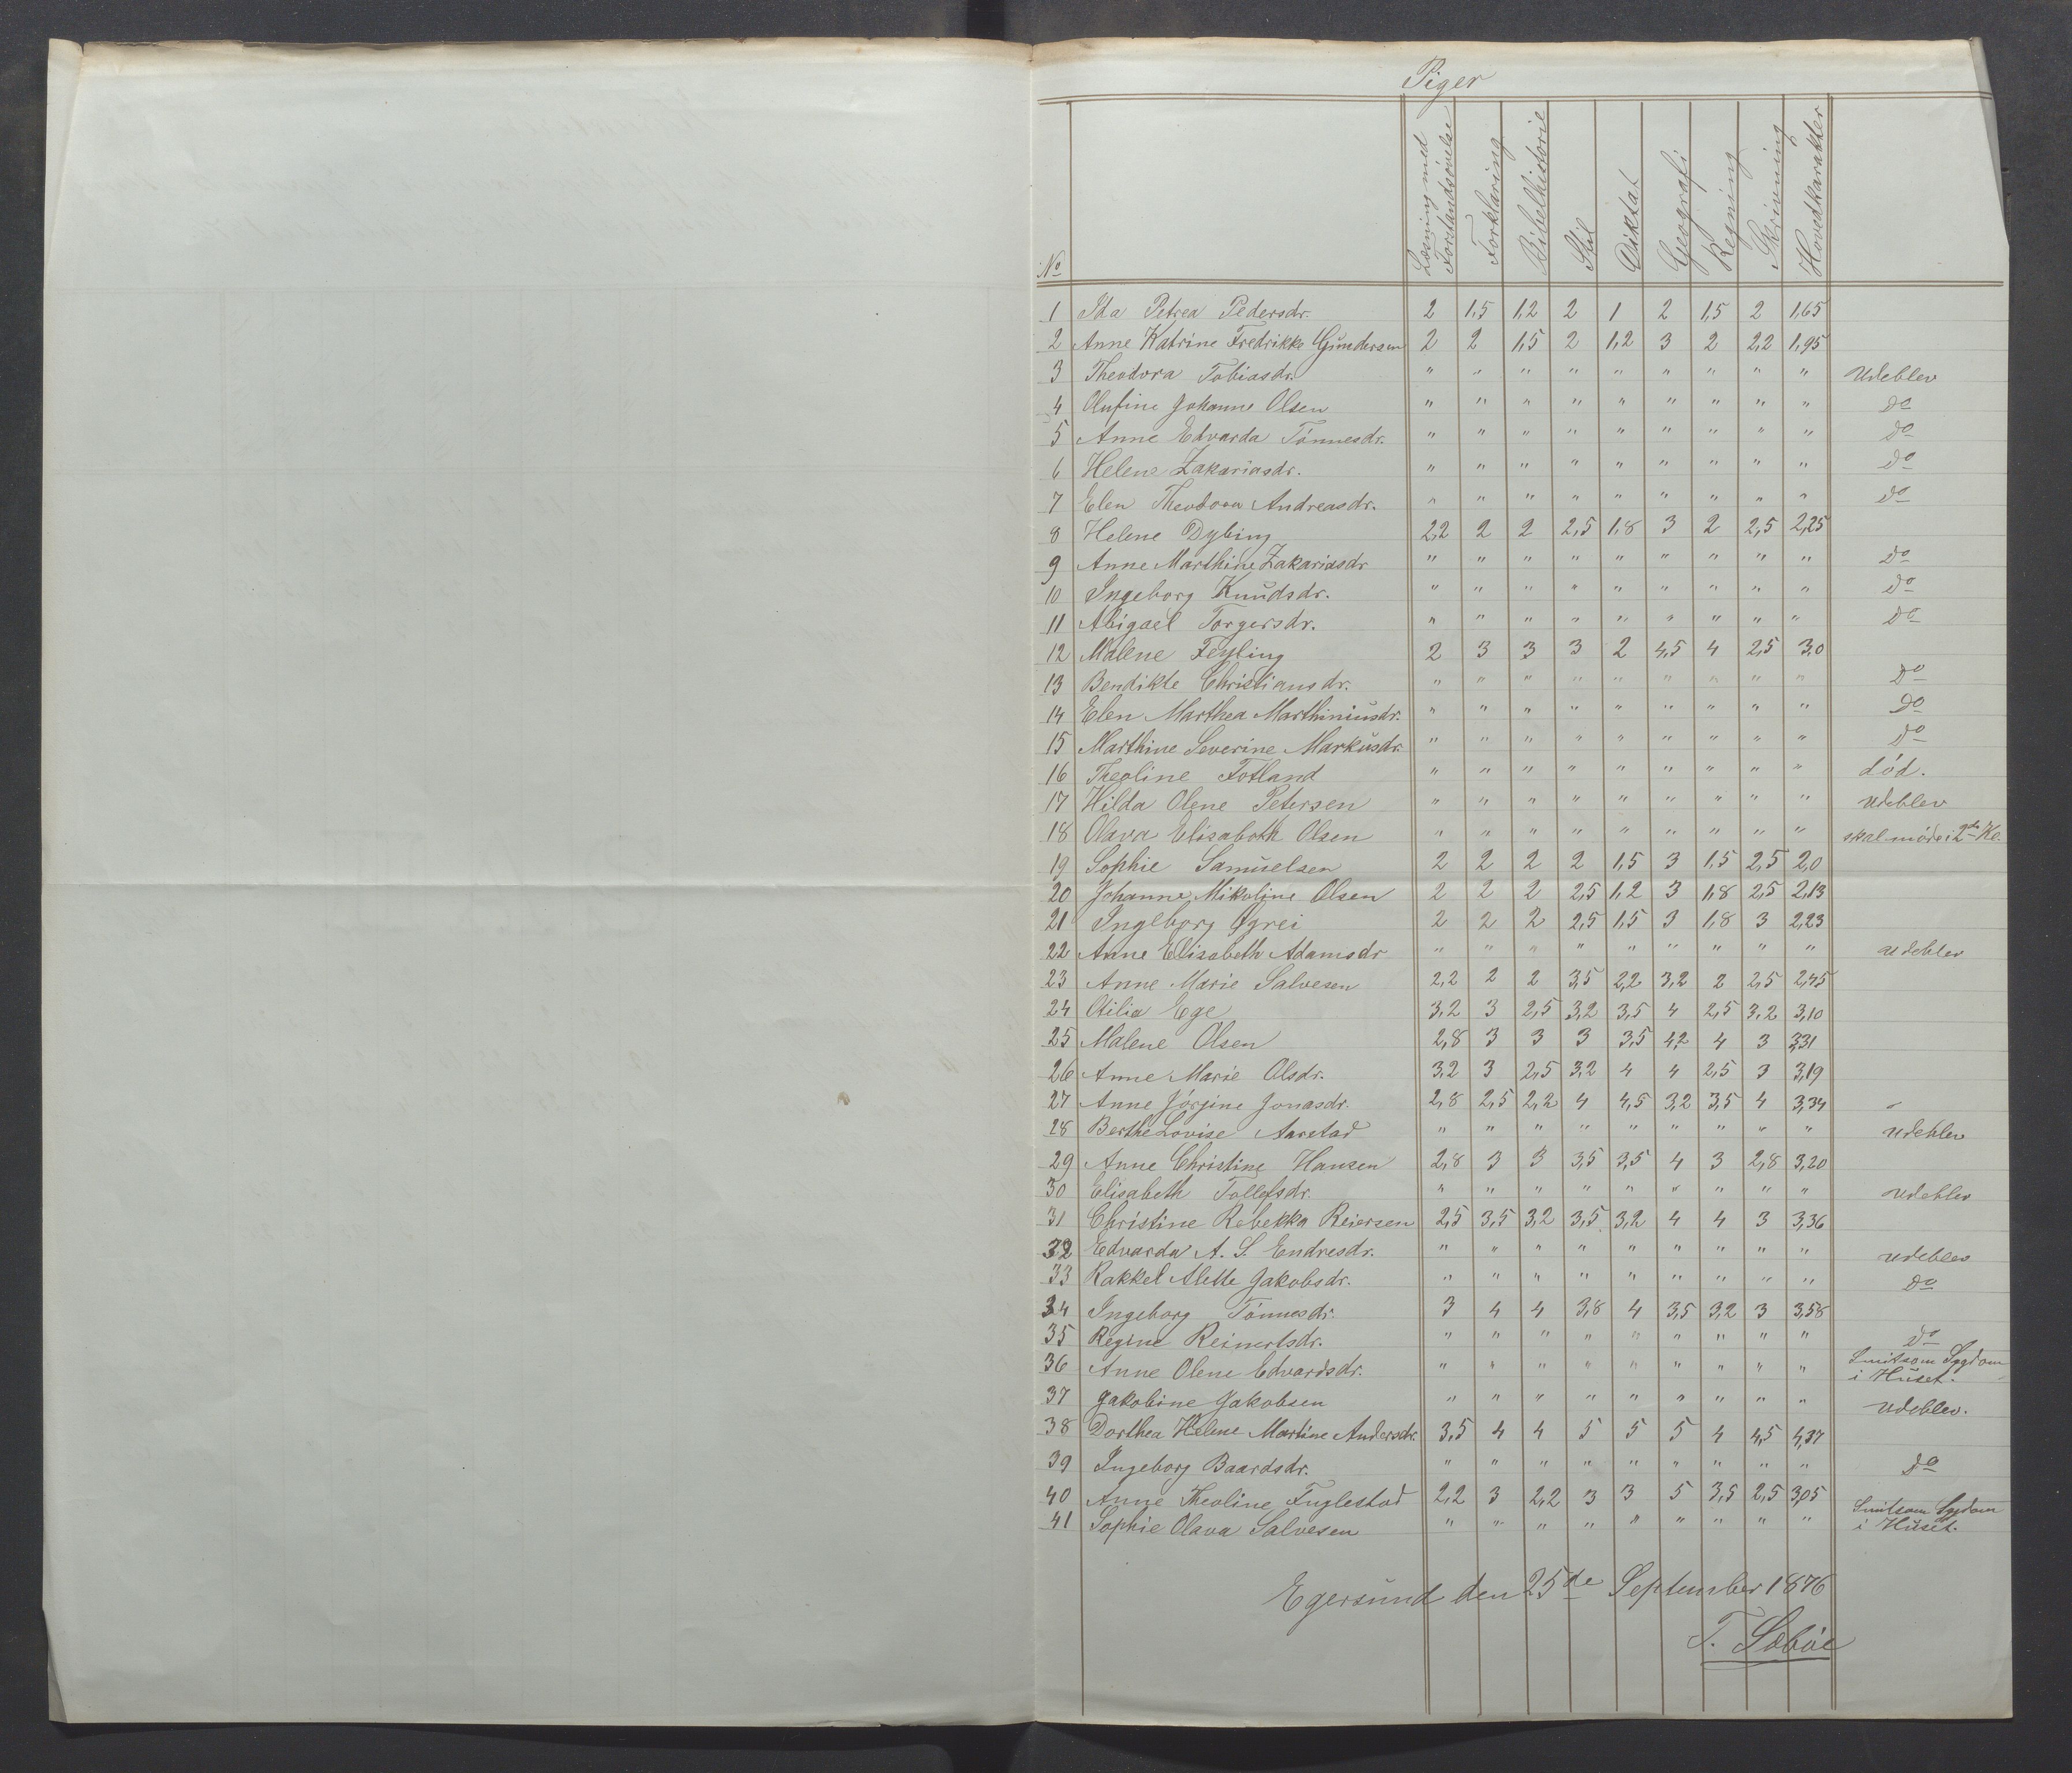 Piger
No Læsning med Forstandsøvelse Forklaring Bibelhistorie Stil Diktat Geografi Regning Skrivning Hovedkarakter
1 Ida Petrea Pedersdr. 2 1,5 1,2 2 1 2 1,5 2 1,65
2 Anne Katrine Fredrikke Gundersen 2 2 1,5 2 1,2 3 2 2,2 1,95
3 Theodora Tobiasdr. " " " " " " " " " Udeblev
4 Olufine Johanne Olsen " " " " " " " " " Do
5 Anne Edvarda Tønnesdr. " " " " " " " " " Do
6 Helene Zakariasdr. " " " " " " " " " Do
7 Elen Theodora Andreasdr. " " " " " " " " " Do
8 Helene Dybing 2,2 2 2 2,5 1,8 3 2 2,5 2,25
9 Anne Marthine Zakariasdr " " " " " " " " " Do
10 Ingeborg Knudsdr. " " " " " " " " " Do
11 Abigael Torgersdr. " " " " " " " " " Do
12 Malene Feyling 2 3 3 3 2 4,5 4 2,5 3,0
13 Bendikte Christiansdr. " " " " " " " " " Do
14 Elen Marthea Marthiniusdr. " " " " " " " " " Do
15 Marthine Severine Markusdr. " " " " " " " " " Do
16 Theoline Fotland " " " " " " " " " død.
17 Hilda Olene Petersen " " " " " " " " " Udeblev
18 Olava Elisabeth Olsen " " " " " " " " " skal møde i 2de Kl.
19 Sophie Samuelsen 2 2 2 2 1,5 3 1,5 2,5 2,0
20 Johanne Mikoline Olsen 2 2 2 2,5 1,2 3 1,8 2,5 2,13
21 Ingeborg Øgrei 2 2 2 2,5 1,5 3 1,8 3 2,23
22 Anne Elisabeth Adamsdr " " " " " " " " " udeblev
23 Anne Marie Salvesen 2,2 2 2 3,5 2,2 3,2 2 2,5 2,45
24 Otilia Ege 3,2 3 2,5 3,2 3,5 4 2,5 3,2 3,10
25 Malene Olsen 2,8 3 3 3 3,5 4,2 4 3 3,31
26 Anne Marie Olsdr. 3,2 3 2,5 3,2 4 4 2,5 3 3,19
27 Anne Jørgine Jonasdr. 2,8 2,5 2,2 4 4,5 3,2 3,5 4 3,34
28 Berthe Lovise Aarstad " " " " " " " " " Udeblev
29 Anne Christine Hansen 2,8 3 3 3,5 3,5 4 3 2,8 3,20
30 Elisabeth Tollefsdr. " " " " " " " " " Udeblev
31 Christine Rebekka Reiersen 2,5 3,5 3,2 3,5 3,2 4 4 3 3,36
32 Edvarda A. S. Endresdr. " " " " " " " " " udeblev
33 Rakkel Alette Jakobsdr. " " " " " " " " " Do
34 Ingeborg Tønnesdr. 3 4 4 3,8 4 3,5 3,2 3 3,58
35 Regine Reinertsdr. " " " " " " " " " Do
36 Anne Olene Edvardsdr. " " " " " " " " " Smitsom Sygdom
i Huset.
37 Jakobine Jakobsen " " " " " " " " " Udeblev.
38 Dorthea Helene Martine Andersdr. 3,5 4 4 5 5 5 4 4,5 4,37
39 Ingeborg Baardsdr. " " " " " " " " " Do
40 Anne Theoline Fuglestad 2,2 3 2,2 3 3 5 3,5 2,5 3,05
41 Sophie Olava Salvesen " " " " " " " " " Smitsom Sygdom
i Huset.
Egersund den 25de September 1876
T. Sæbøe